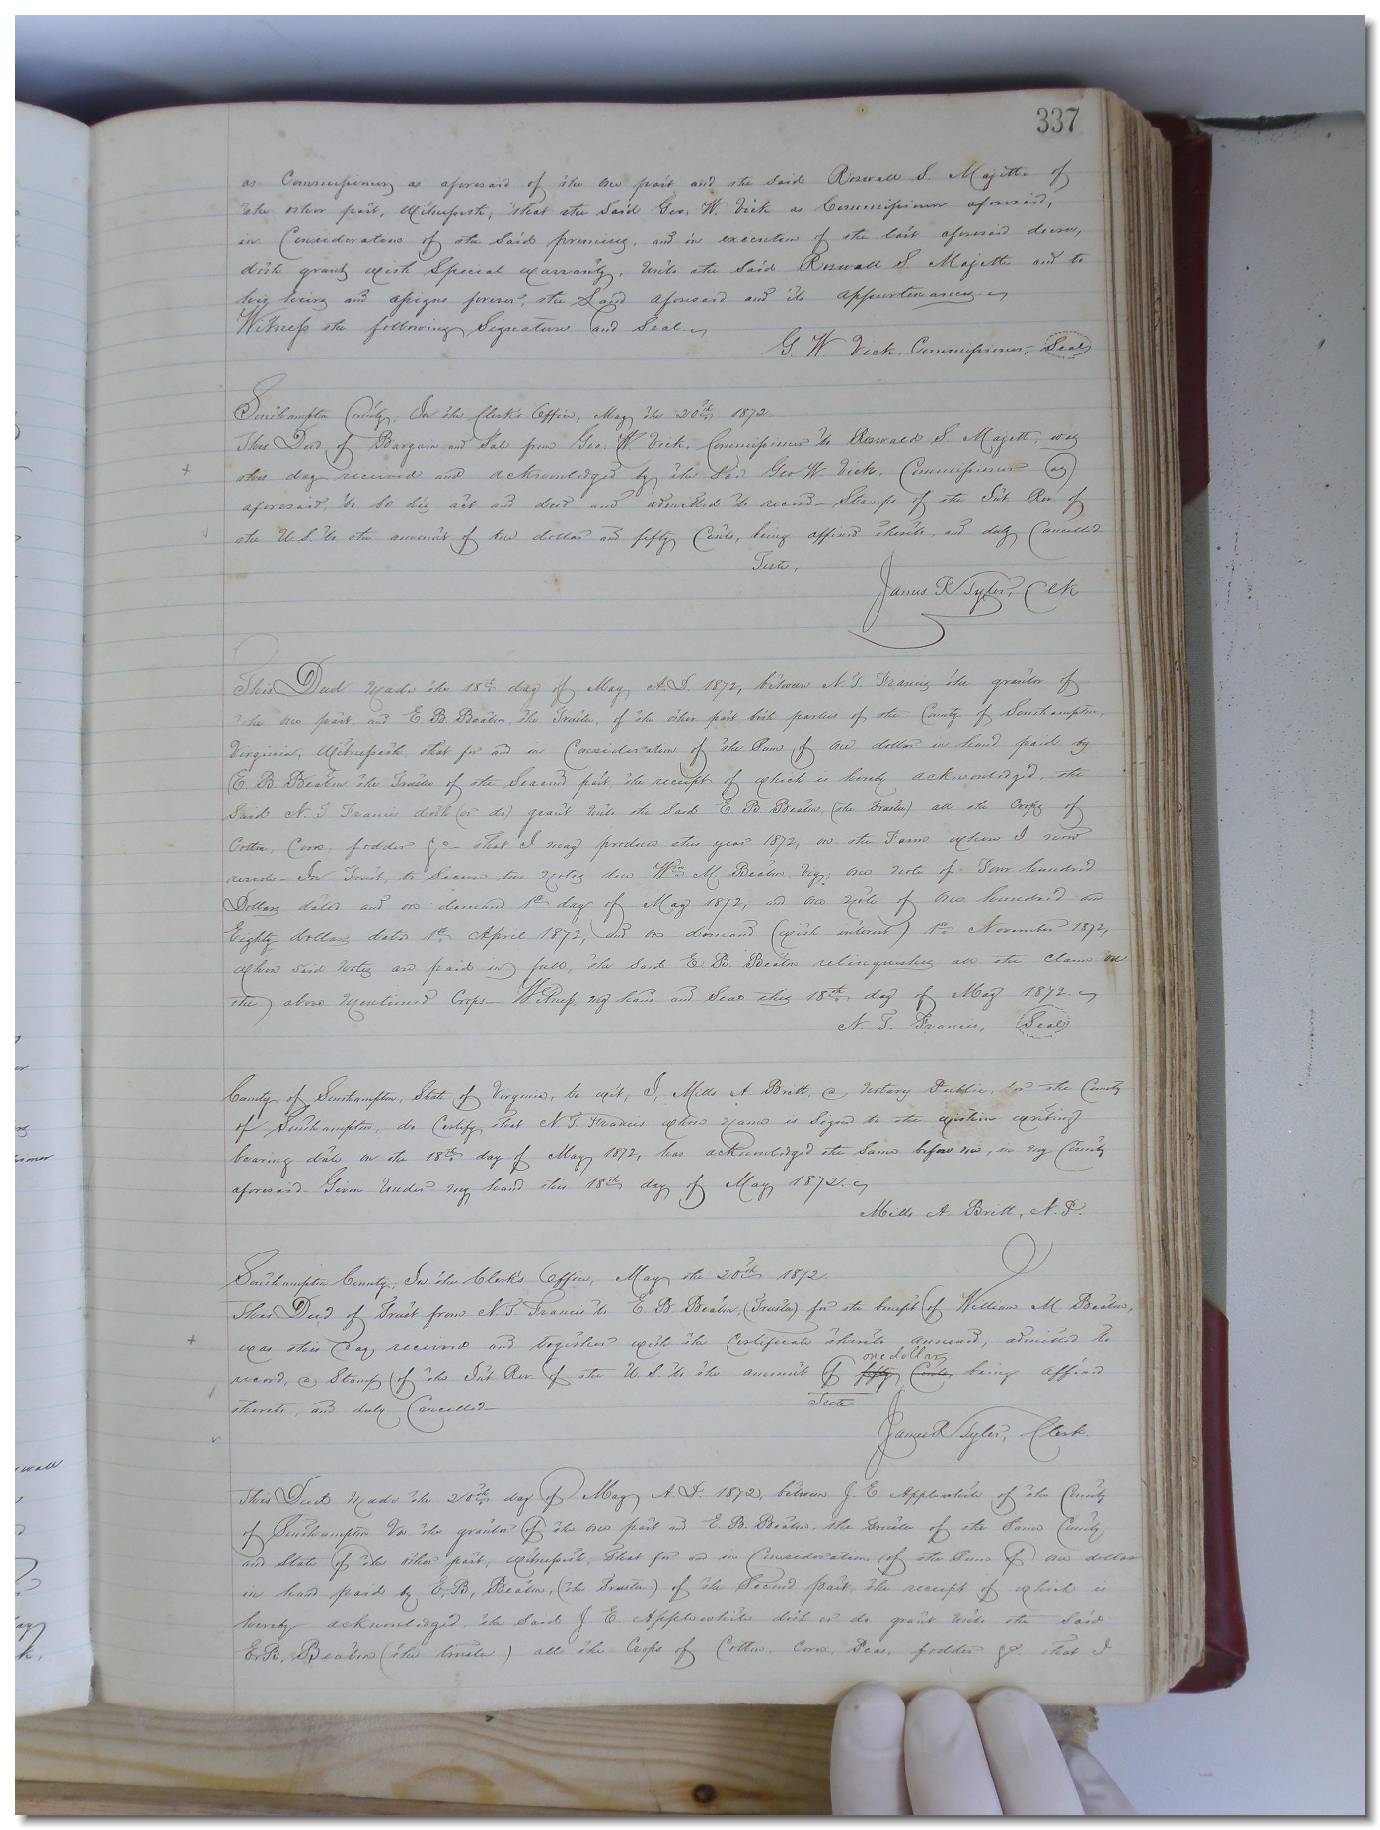 337
as Commissioner as aforesaid of the one part and the said Roswall S. Majette of
the other part, Witnesseth, that the said Geo. W. Vick as Commissioner aforesaid,
in Consideration of the said premises, and in execution of the last aforesaid decree,
doth grant with Special warranty, unto the said Roswall S. Majette and to
his heirs and assigns forever, the Land aforesaid and its appurtenances
Witness the following Signature and Seal
G. W. Vick, Commissioner, Seal
Southampton County, In the Clerk's Office, May the 20th 1872
This Deed of Bargain and Sale from Geo. W. Vick, Commissioner to Roswald S. Majett, was
this day received and acknowledged by the Sd Geo W. Vick, Commissioner as
aforesaid, to be his act and deed and admitted to record. Stamps of the Int Rev of
the U.S. to the amount of one dollar and fifty Cents, being affixed thereto and duly Cancelled
Teste,
James R Tyler, Clk
This Deed made the 18th day of May A.D. 1872, between N. T. Francis the grantor of
the one part and E. B. Beaton the Trustee, of the other part both parties of the County of Southampton,
Virginia, Witnesseth that for and in Consideration of the Sum of one dollar in hand paid by
E. B. Beaton the Trustee of the Second part, the receipt of which is hereby acknowledged, the
Said N. T. Francis doth (or do) grant unto the said E. B. Beaton (the Trustee) all the Crops of
Cotton, Corn, fodder &c that I may produce this year 1872, on the Farm where I now
reside In Trust, to Secure two notes due Wm M. Beaton, Viz; one note of Four hundred
Dollars dated and on demand 1st day of May 1872, and one note of One hundred and
Eighty dollars dated 1st April 1872, and on demand (with interest) 1st November 1872,
when said notes are paid in full, the said E. B. Beaton relinquishes all the Claim on
the above mentioned Crops - Witness my hand and Seal this 18th day of May 1872.
N. T. Francis, Seal
County of Southampton, State of Virginia, to wit, I, Mills A. Britt, a Notary Public, for the County
of Southampton, do Certify that N. T. Francis whose name is Signed to the written writing
bearing date on the 18th day of May 1872, has acknowledged the Same before me, in my County
aforesaid. Given under my hand this 18th day of May 1872.
Mills A. Britt, N. P.
Southampton County, In the Clerk's Office, May the 20th 1872.
This Deed of Trust from N. T. Francis to E B Beaton, (Trustee) for the benefit of William M. Beaton,
was this day received and together with the Certificate thereto annexed, admitted to
one dollar
record, a Stamp of the Int. Rev. of the U.S. to the amount of fifty Cents being affixed
thereto, and duly Cancelled
Teste
James R Tyler, Clerk.
This Deed made the 20th day of May A. D. 1872, between J. E. Applewhite of the County
of Southampton Va the grantor of the one part and E. B. Beaton the trustee of the Same County
and State of the other part, witnesseth, that for and in Consideration of the Sum of one dollar
in hand paid by E. B. Beaton, (the Trustee) of the Second part, the receipt of which is
hereby acknowledged the Said J. E. Applewhite doth or do grant unto the Said
E. B. Beaton (the trustee) all the Crops of Cotton, Corn, Peas, fodder &c. that I